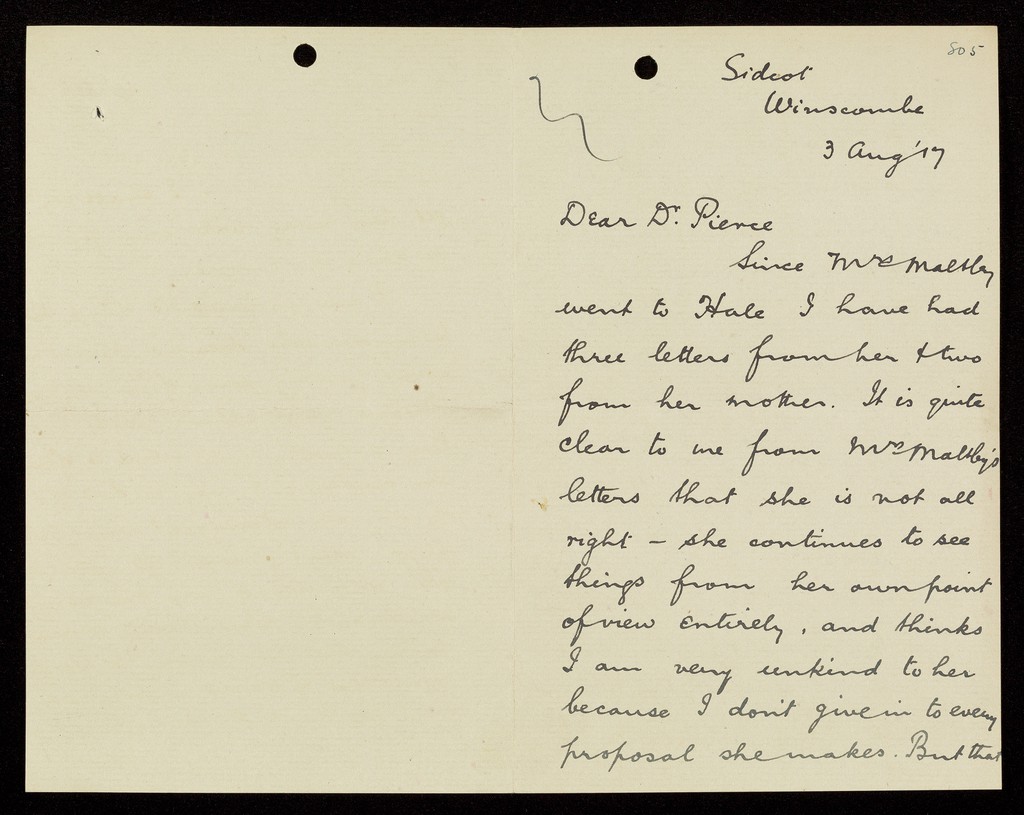 805
Sidcot
Winscombe
3 Aug '17
Dear Dr. Pierce
Since Mrs Maltby
went to Hale I have had
three letters from her & two
from her mother. It is quite
clear to me from Mrs Maltby's
letters that she is not all
right – she continues to see
things from her own point
of view entirely, and thinks
I am very unkind to her
because I don't give in to every
proposal she makes. But that